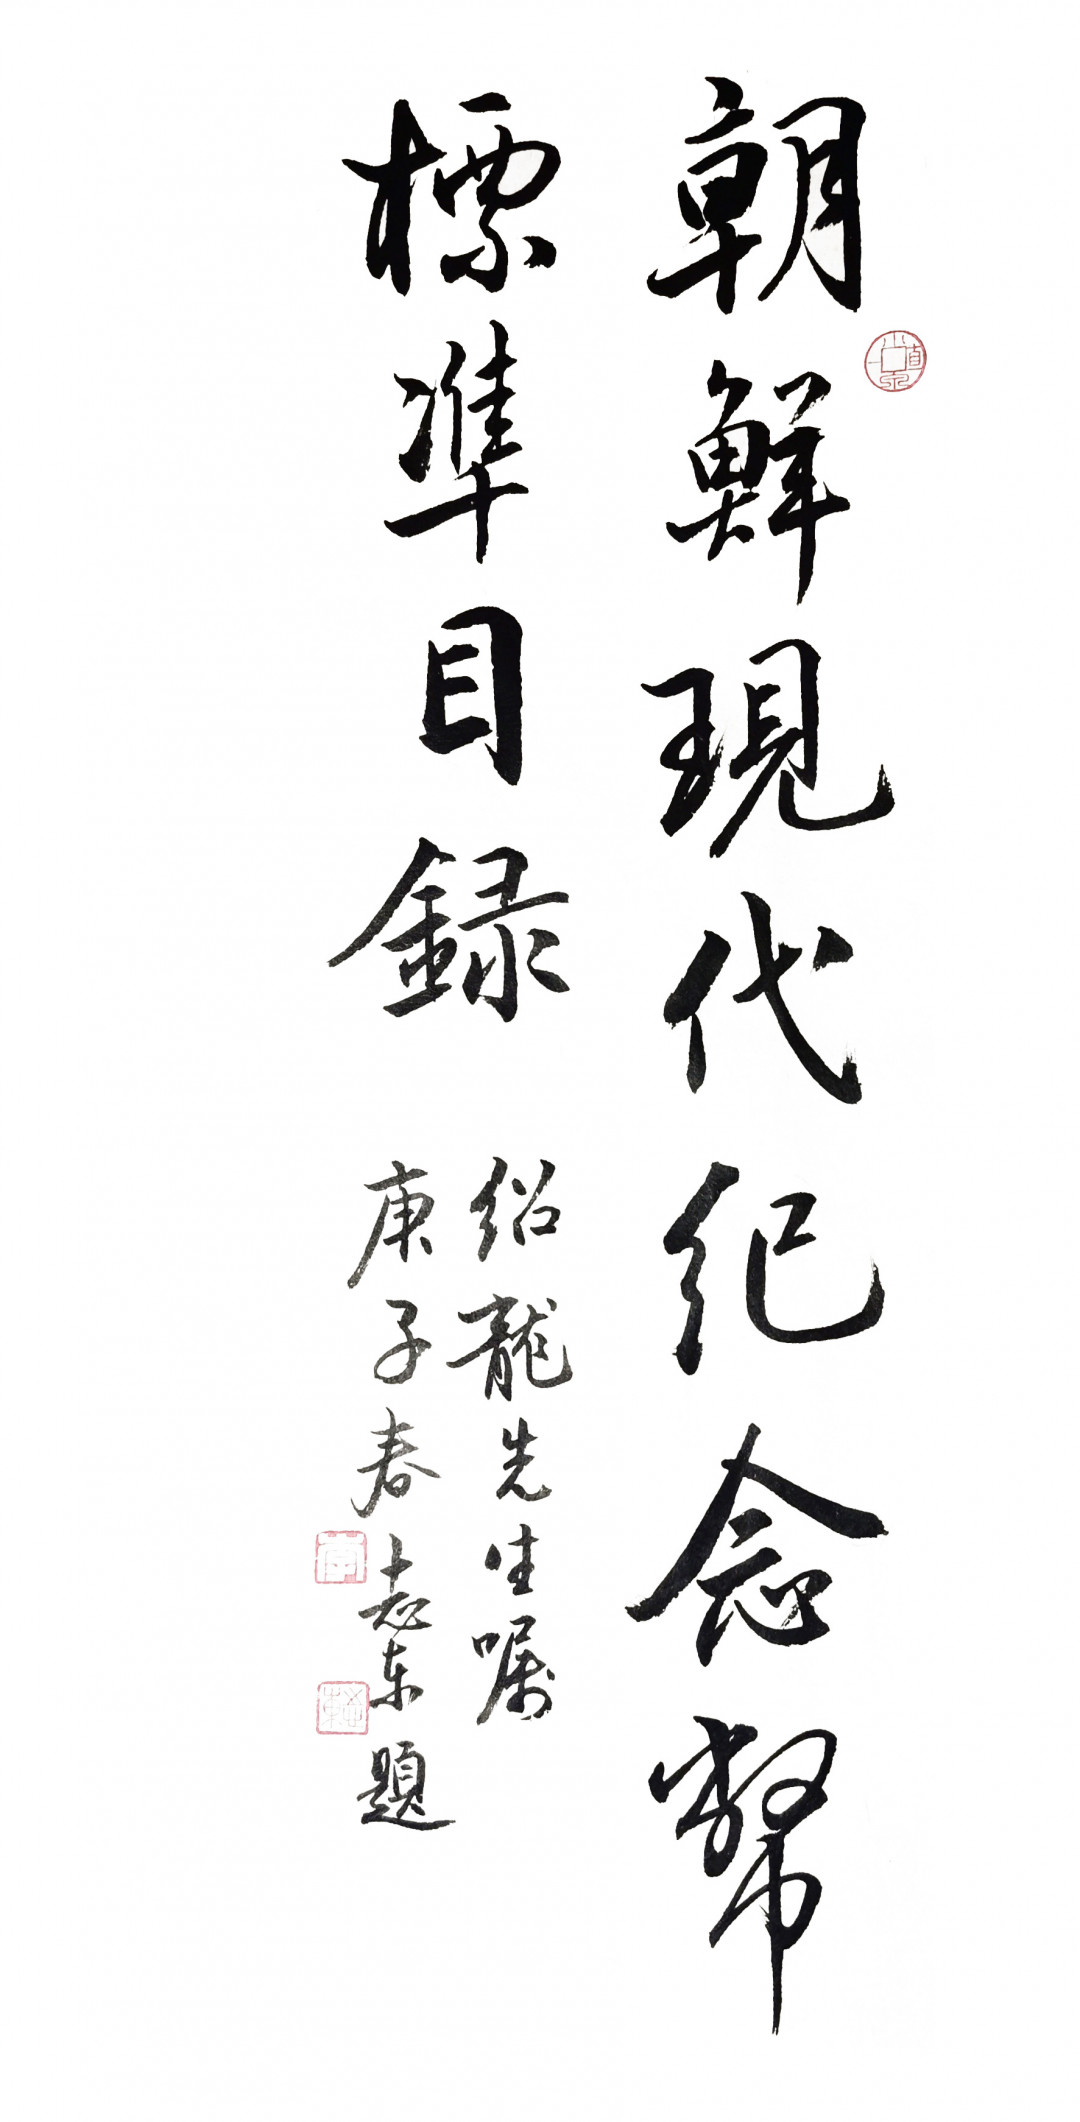 朝鮮現代纪念幣
標準目録
绍龍先生嘱
庚子春志东題